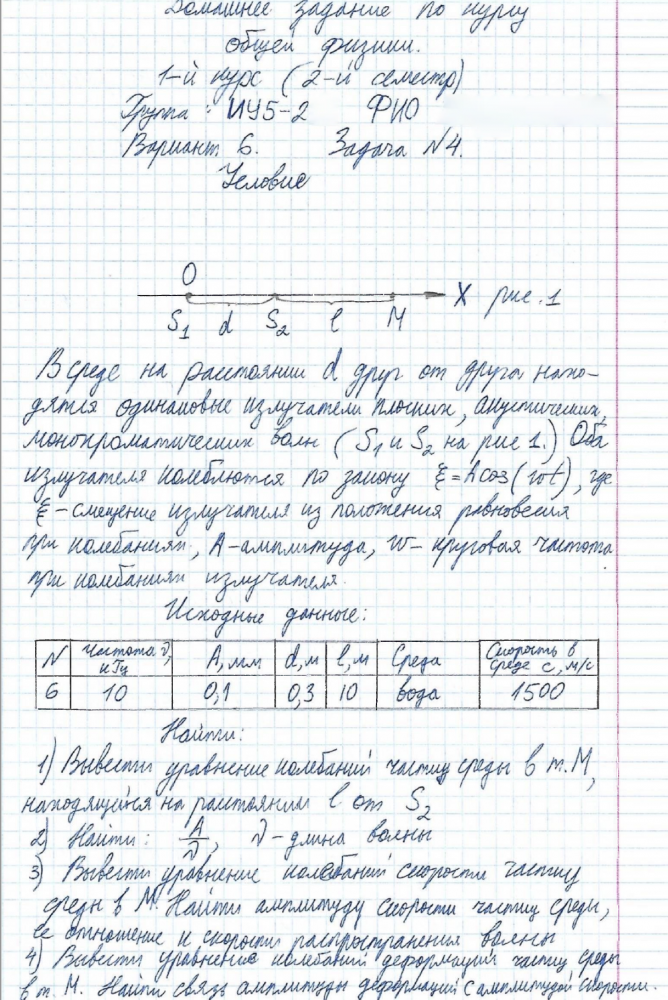 Домашнее задание по курсу
общей физики.
1-й курс (2-й семестр)
Группа: ИУ5-2 ФИО
Вариант 6. Задача №4.
Условие
O
X рис. 1
S1 d S2 l M
В среде на расстоянии d друг от друга нахо-
дятся одинаковые излучатели плоских, акустических,
монохроматических волн (S1 и S2 на рис 1.) Оба
излучателя колеблются по закону ξ=Acos(wt), где
ξ-смещение излучателя из положения равновесия
при колебаниях, A-амплитуда, w- круговая частота
при колебаниях излучателя.
Исходные данные:
N Частота ν, кГц A, мм d, м l, м Среда Скорость в среде c, м/с
6 10 0,1 0,3 10 вода 1500
Найти:
1) Вывести уравнение колебаний частиц среды в т. М,
находящейся на расстоянии l от S2
2) Найти: A/λ, λ-длина волны
3) Вывести уравнение колебаний скорости частиц
среды в М. Найти амплитуду скорости частиц среды,
ее отношение к скорости распространения волны
4) Вывести уравнение колебаний деформации частиц среды
в т. М. Найти связь амплитуды деформаций с амплитудой скорости.